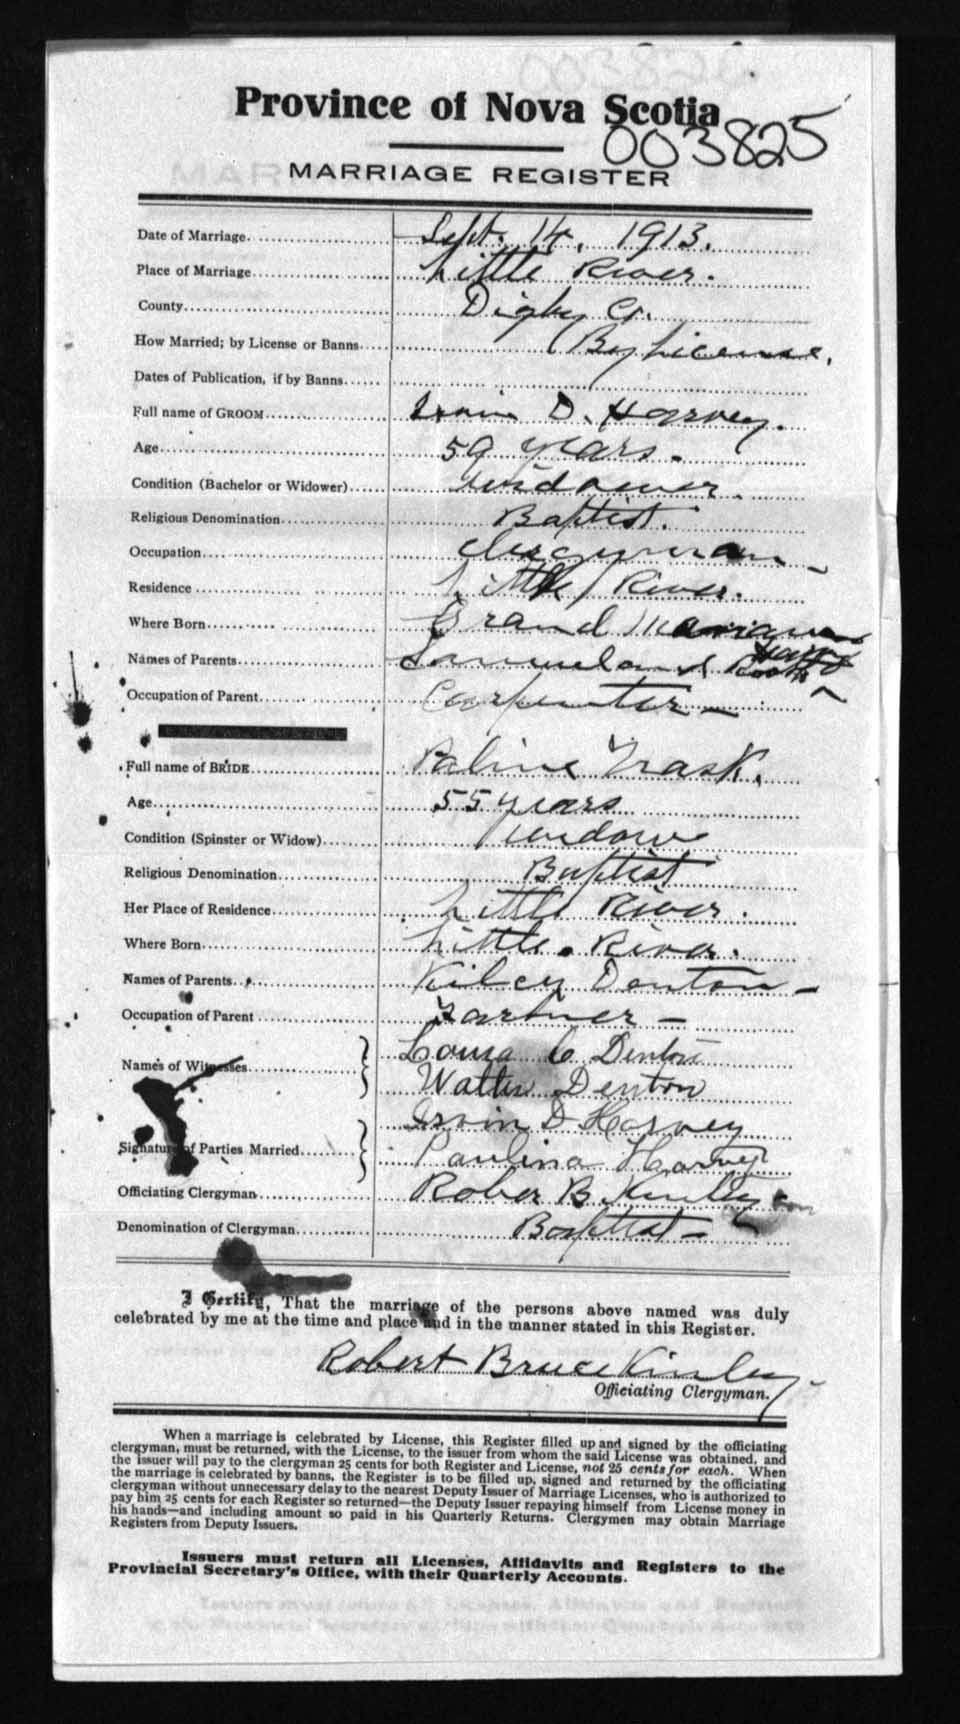 Province of Nova Scotia
003825
MARRIAGE REGISTER
Date of Marriage Sept. 14, 1913.
Place of Marriage Little River.
County Digby Co.
How Married; by License or Banns By License.
Dates of Publication, if by Banns
Full name of GROOM Irvin D. Harvey.
Age 59 years.
Condition (Bachelor or Widower) widower.
Religious Denomination Baptist.
Occupation clergyman
Residence Little River.
Where Born Grand Manan
Names of Parents Samuel and
Occupation of Parent Carpenter
Full name of BRIDE Paline Trask.
Age 55 years
Condition (Spinster or Widow) widow
Religious Denomination Baptist
Her Place of Residence Little River.
Where Born Little River.
Names of Parents Denton
Occupation of Parent
Names of Witnesses C Denton
Walter Denton
Irvin D Harvey
Signature of Parties Married Paulina Harvey
Officiating Clergyman Rober B. Kinley
Denomination of Clergyman Baptist
I Certify, That the marriage of the persons above named was duly
celebrated by me at the time and place and in the manner stated in this Register.
Robert Bruce Kinley
Officiating Clergyman.
When a marriage is celebrated by License, this Register filled up and signed by the officiating
clergyman, must be returned, with the License, to the issuer from whom the said License was obtained, and
the issuer will pay to the clergyman 25 cents for both Register and License, not 25 cents for each. When
the marriage is celebrated by banns, the Register is to be filled up, signed and returned by the officiating
clergyman without unnecessary delay to the nearest Deputy Issuer of Marriage Licenses, who is authorized to
pay him 25 cents for each Register so returned—the Deputy Issuer repaying himself from License money in
his hands—and including amount so paid in his Quarterly Returns. Clergymen may obtain Marriage
Registers from Deputy Issuers.
Issuers must return all Licenses, Affidavits and Registers to the
Provincial Secretary's Office, with their Quarterly Accounts.